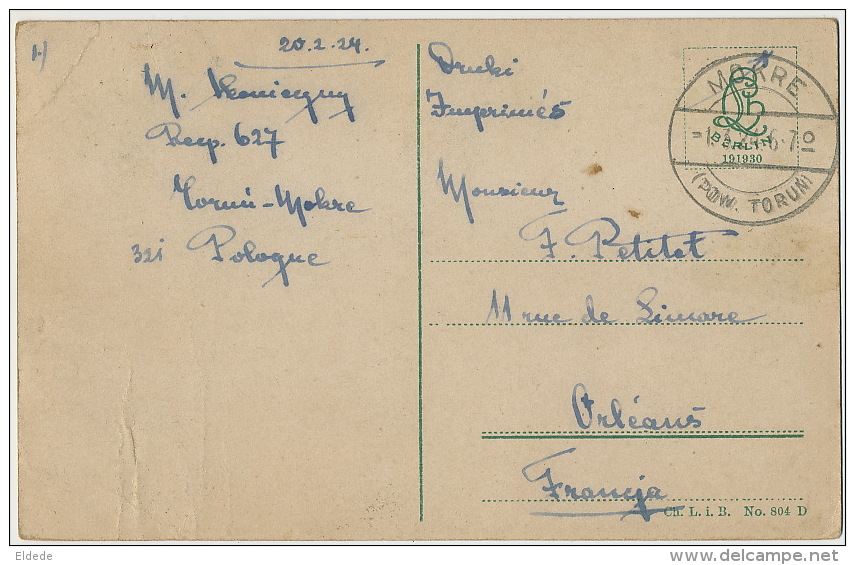 1)
20.2.24.
M.
627
Toruń-Mokre
321 Pologne
Druki
Imprimés
Monsieur
F. Petitet
11 rue de Limare
Orléans
Francja
MOKRE
(POW. TORUŃ)
BERLIN
191930
Ch. L. i. B. No. 804 D
Eldede
delcampe.net